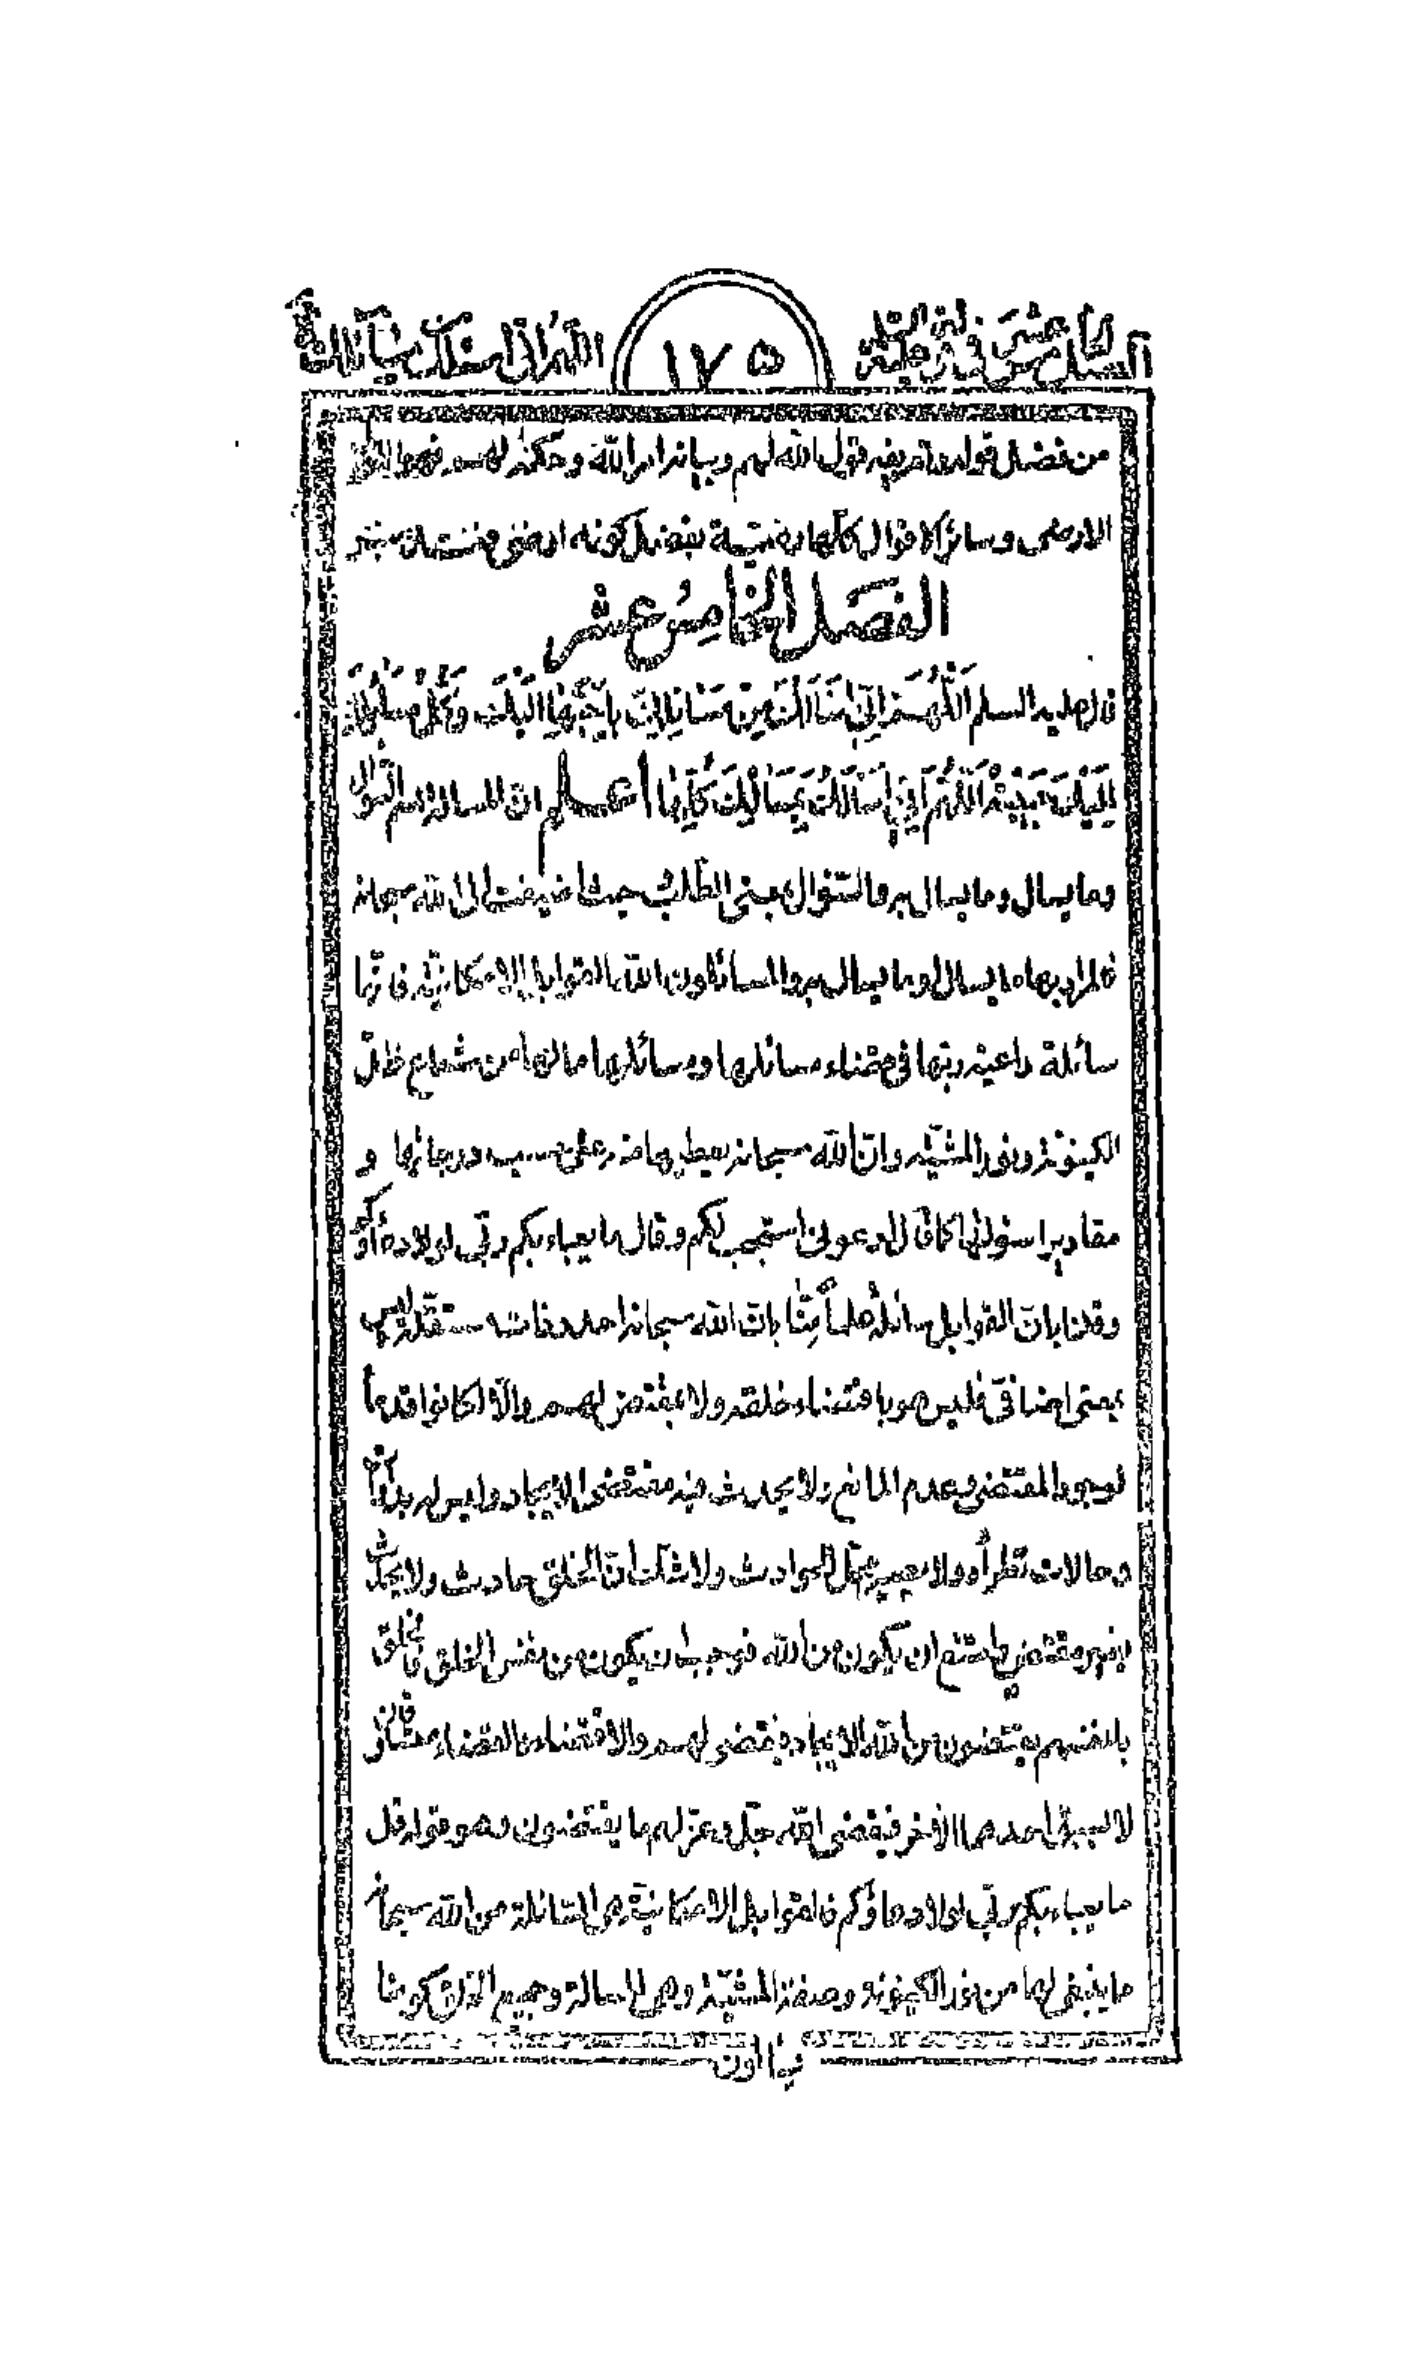 الفصل الخامس عشر في شرح قوله عليه السلم
١٧٥
اللهم اني اسئلك من مسائلك
من فضل قوله وتعريفه قول الله لهم وبيانه امر الله وحكمه لهم فهو القول
الارضى وسائر الاقوال كلها رضية بفضل كونه ارضى
الفصل الخامس عشر
قال عليه السلم اللهم اني اسئلك من مسائلك باحبها اليك وكل مسائلك
اليك حبيبة اللهم اني اسئلك بمسائلك كلها اعلم ان المسالة اسم السؤال
وما يسال وما يسال به والسؤال بمعنى الطلب حيث اضيفت الى الله سبحانه
فالمراد بها ما يسال وما يسال به والسائلون الله القوابل الامكانية فانها
سائلة داعية ربها في قضاء مسائلها ومسائلها ما لها من شعاع ظل
الكينونة ونور المشية وان الله سبحانه يعطيها منه على حسب درجاتها و
مقادير اسؤلتها كما قال ادعوني استجب لكم وقال ما يعباء بكم ربي لولا دعاؤكم
وقلنا بان القوابل سائلة علما منا بان الله سبحانه احد وذاته مستقلة ليس
بمعنى اضافي فليس هو باقتضاء خلقه ولا بمقتض لهم والا لكانوا قدماء
لوجود المقتضي وعدم المانع ولا يحدث فيه مقتضى الايجاد وليس له بداوات
وحالات تطرأه ولا يصير محل الحوادث ولا شك ان الخلق حادث ولا يحدث
بغير مقتض فامتنع ان يكون من الله فوجب ان يكون من نفس الخلق فالخلق
بانفسهم يقتضون من الله الايجاد فيقضي لهم والاقتضاء والقضاء متساوقان
لا يسبق احدهما الاخر فيقضي الله جل وعز لهم ما يقتضون وهو قوله قل
ما يعباء بكم ربي لولا دعاؤكم فالقوابل الامكانية هي السائلة من الله سبحانه
ما ينبغي لها من نور الكينونة وصفة المشية وهي المسالة وجميع الذي ذكرنا